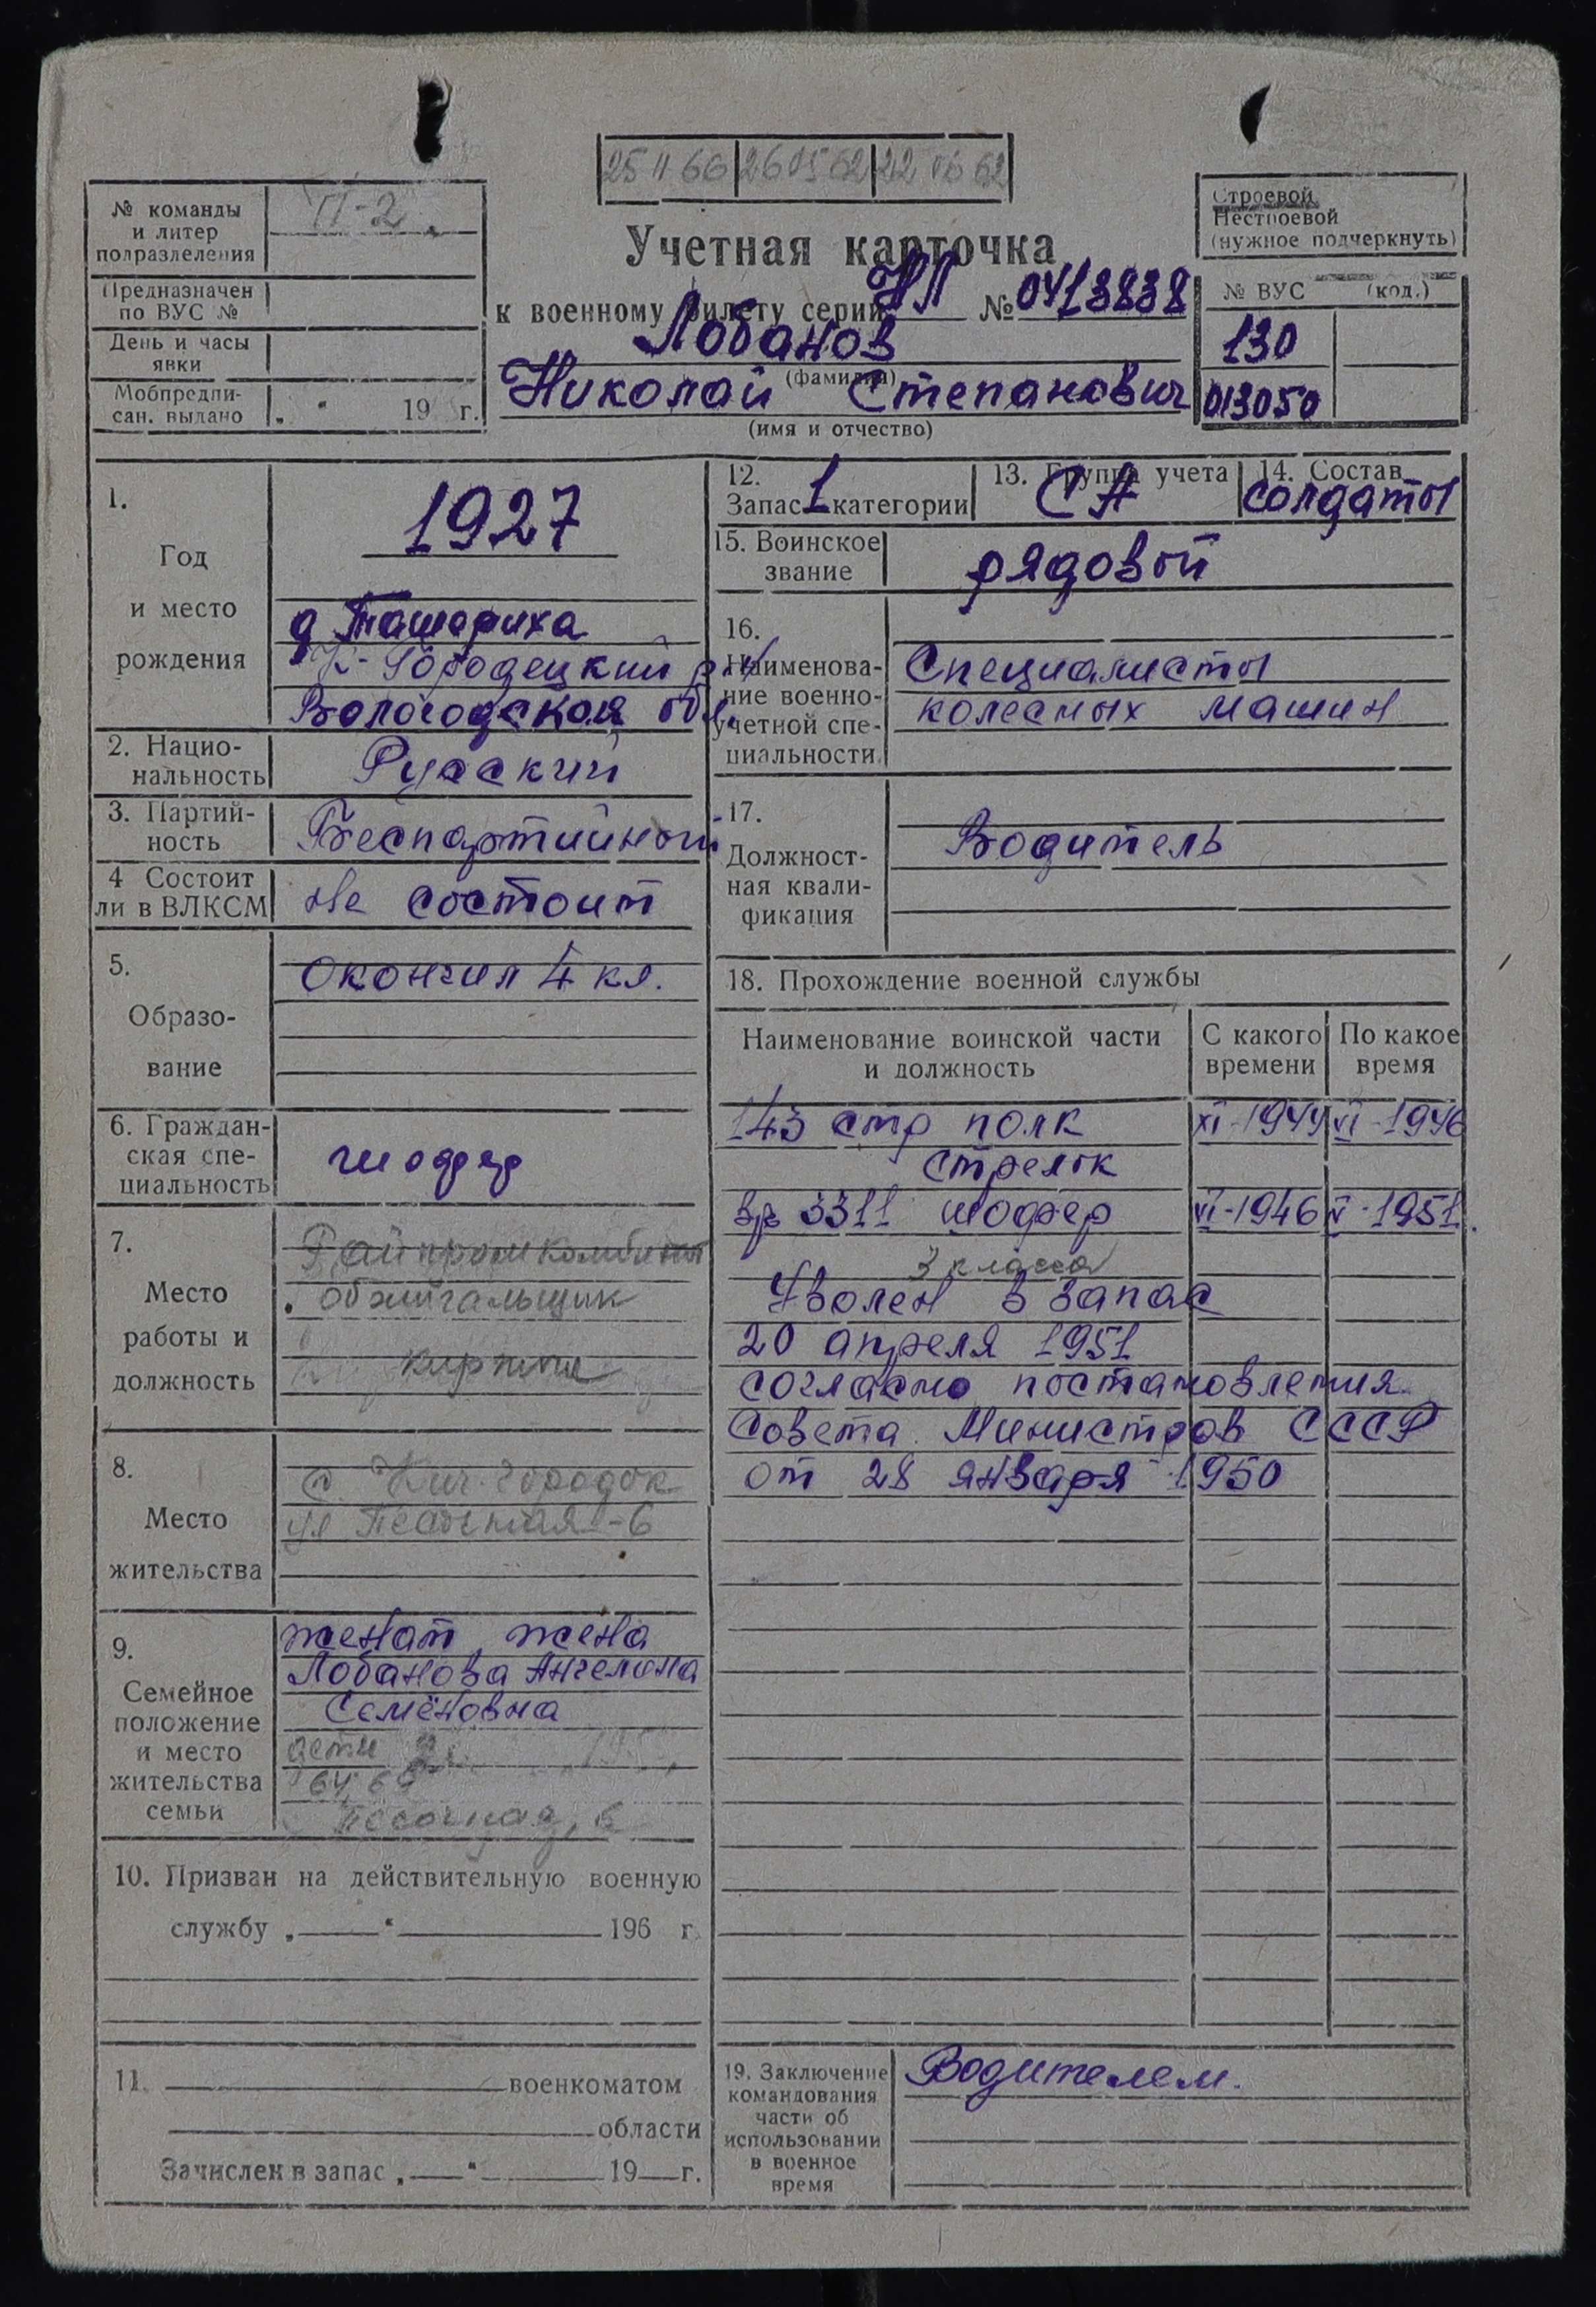 25 11 66 26 05 62 22 06 62
№ команды и литер подразделения
П-2
Предназначен по ВУС №
День и часы явки
Мобпредписан. выдано „ “ 19 г.
Учетная карточка
к военному билету серии НП № 0413838
Лобанов
(фамилия)
Николай Степанович
(имя и отчество)
Строевой
Нестроевой
(нужное подчеркнуть)
№ ВУС (код.)
130
013050
1.
Год
и место
рождения
1927
д Ташариха
К-Городецкий р-н
Вологодская обл.
2. Национальность
Русский
3. Партийность
Беспартийный
4 Состоит ли в ВЛКСМ
Не состоит
5.
Образование
Окончил 4 кл.
6. Гражданская специальность
шофер
7.
Место
работы и
должность
Райпромкомбинат
обжигальщик
кирпича
8.
Место
жительства
с. Кич. Городок
ул Песочная-6
9.
Семейное
положение
и место
жительства
семьи
женат, жена
Лобанова Ангелина
Семёновна
дети
64,
Песочная, 6
10. Призван на действительную военную
службу „ “ 196 г.
11. военкоматом
области
Зачислен в запас „ “ 19 г.
12.
Запас 1 категории
13. Группа учета
СА
14. Состав
солдаты
15. Воинское звание
рядовой
16.
Наименование военно-учетной специальности
Специалисты
колесных машин
17.
Должностная квалификация
Водитель
18. Прохождение военной службы
Наименование воинской части и должность
С какого времени
По какое время
143 стр полк XI-1944 VI-1946
стрелок
вр 3311 шофер VI-1946 V-1951.
3 класса
Уволен в запас
20 апреля 1951
согласно постановления
Совета Министров СССР
от 28 января 1950
19. Заключение
командования
части об
использовании
в военное
время
Водителем.